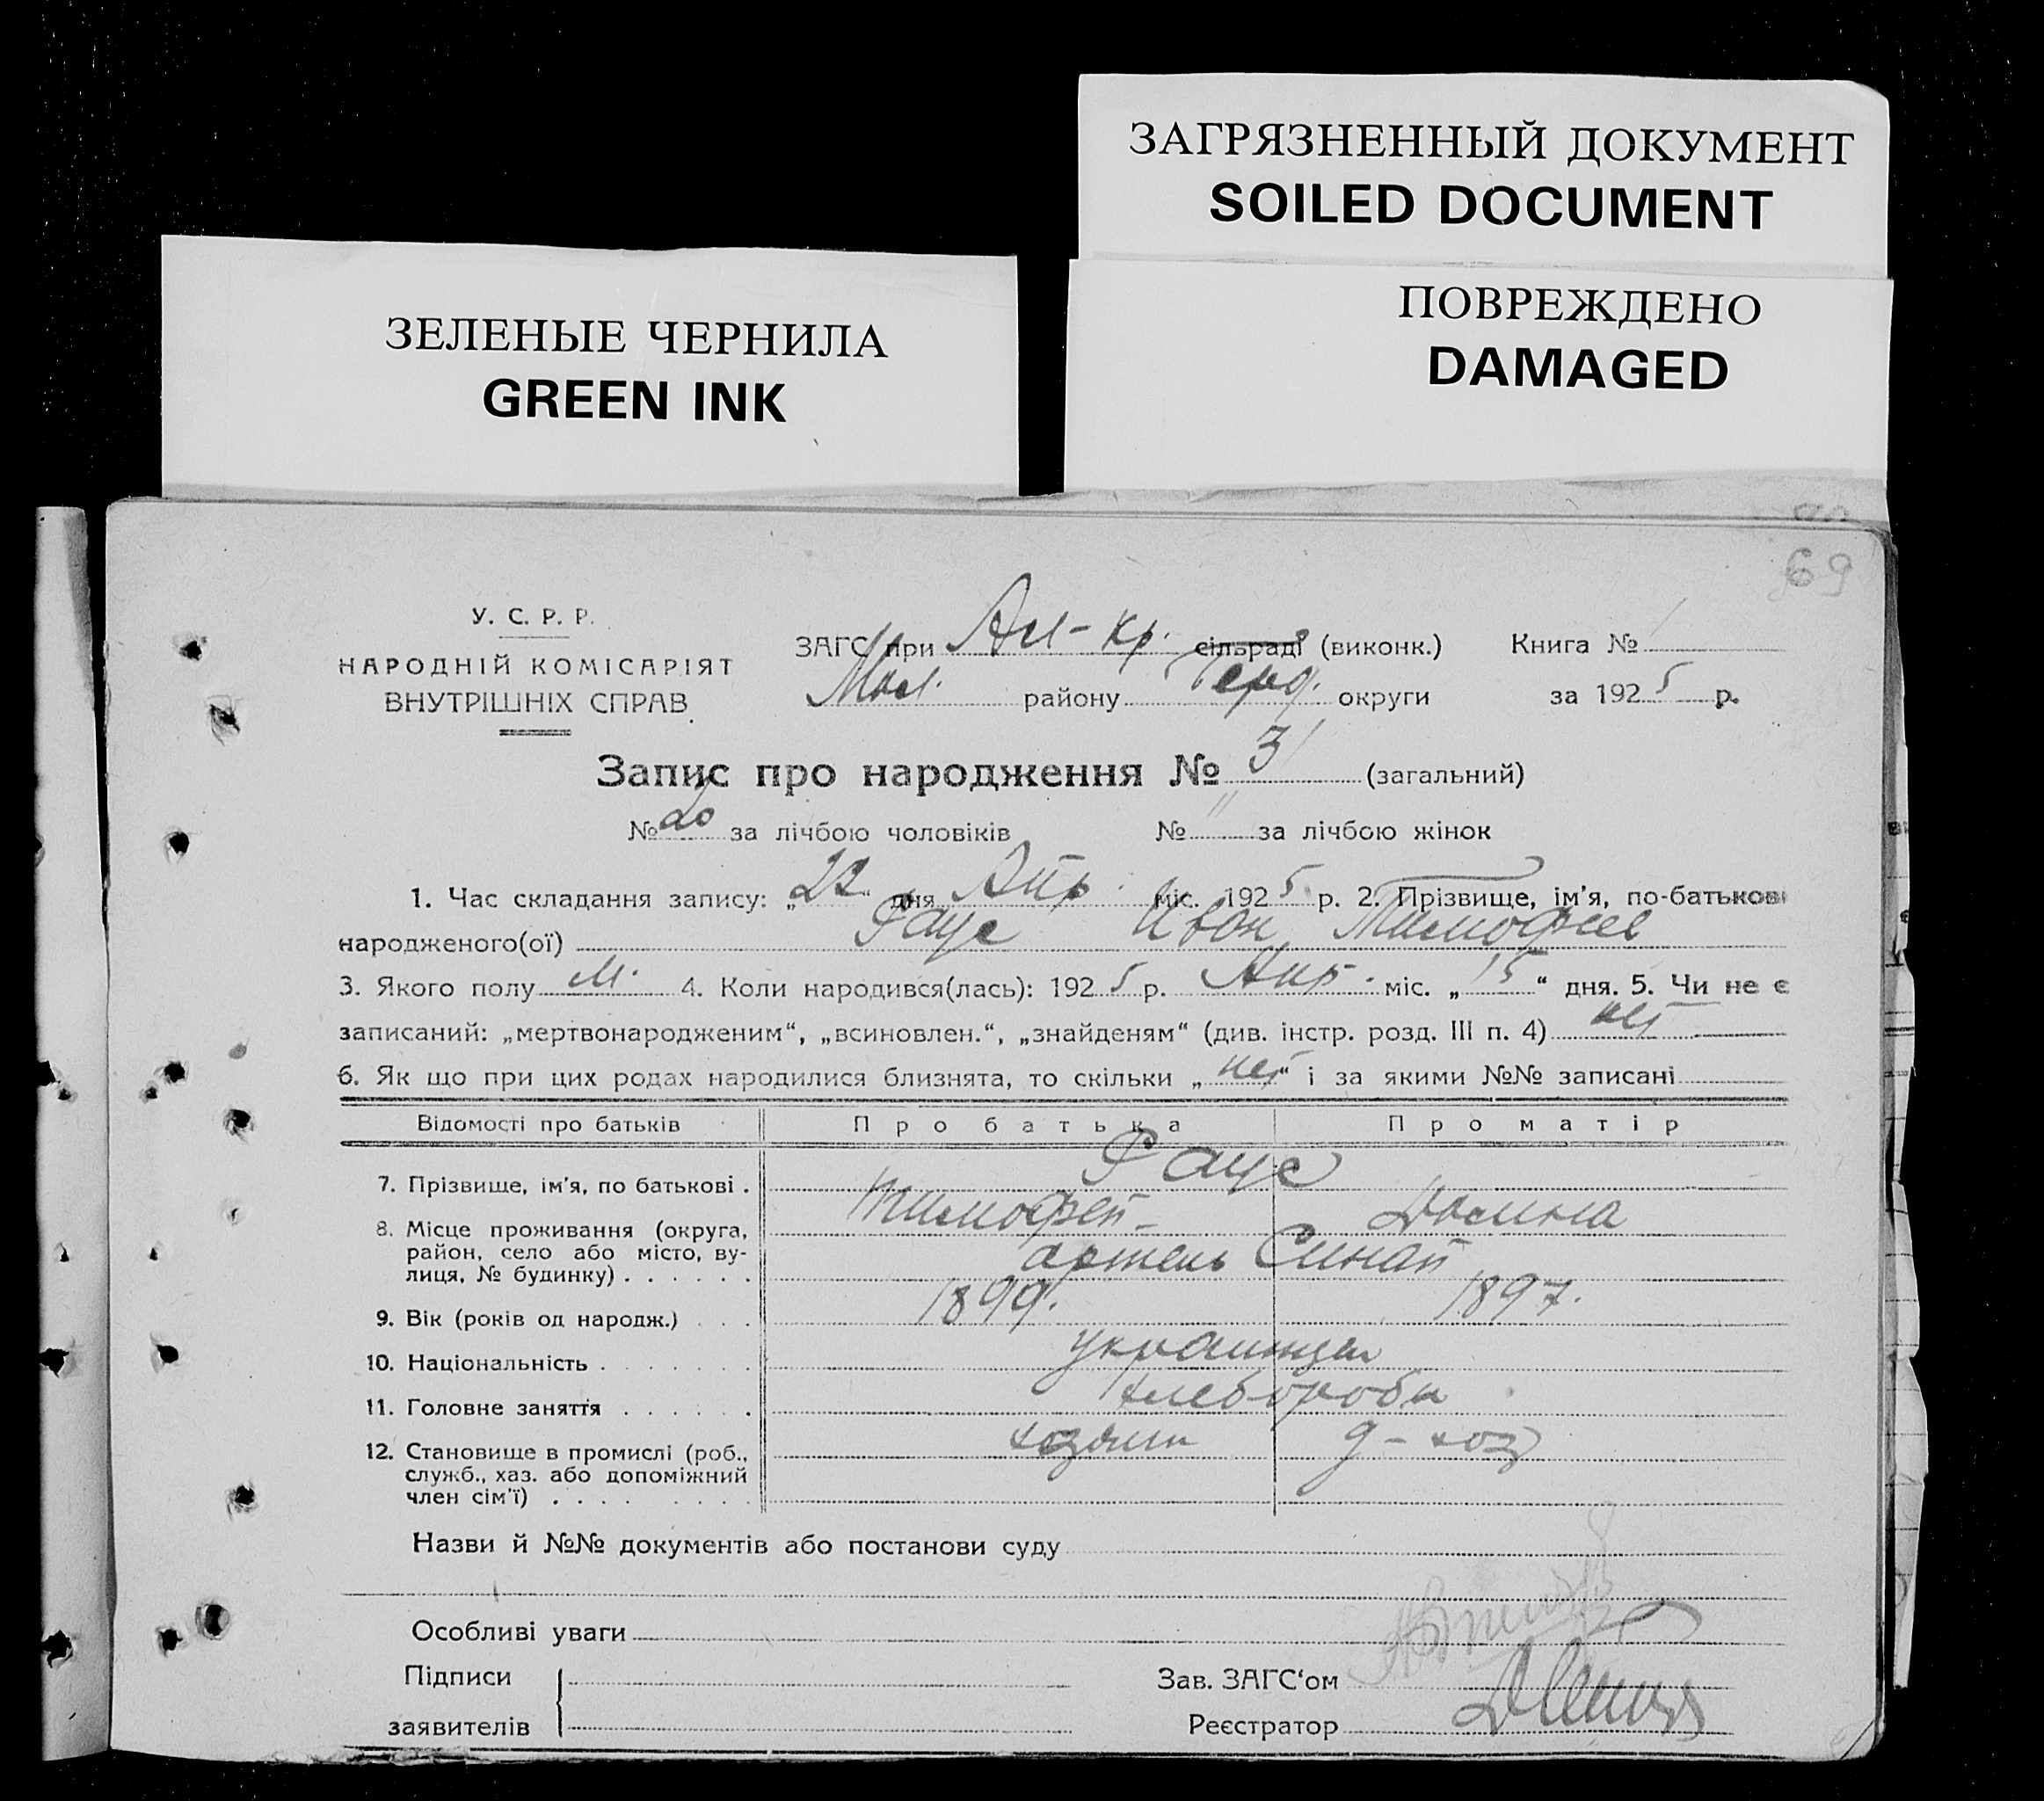 ЗАГРЯЗНЕННЫЙ ДОКУМЕНТ
SOILED DOCUMENT
ПОВРЕЖДЕНО
DAMAGED
ЗЕЛЕНЫЕ ЧЕРНИЛА
GREEN INK
69
У. С. Р. Р.
НАРОДНІЙ КОМІСАРІЯТ
ВНУТРІШНІХ СПРАВ
ЗАГС при сільраді (виконк.) Книга № 1
району округи за 1925 р.
Запис про народження № 31 (загальний)
№ 20 за лічбою чоловіків № " за лічбою жінок
1. Час складання запису: „22“ дня Апр. міс. 1925 р. 2. Прізвище, ім'я, по-батькові
народженого(ої) Гаус Иван Тимофеев
3. Якого полу М. 4. Коли народився(лась): 1925 р. Апр. міс. „15“ дня. 5. Чи не є
записаний: „мертвонародженим“, „всиновлен.“, „знайденям“ (див. інстр. розд. III п. 4) нет
6. Як що при цих родах народилися близнята, то скільки „нет“ і за якими №№ записані
Відомості про батьків Про батька Про матір
7. Прізвище, ім'я, по батькові . Гаус
Тимофей Домна
8. Місце проживання (округа, район, село або місто, ву-
лиця, № будинку) . . . . . . артель Синай
9. Вік (років од народж.) . . . 1899. 1897.
10. Національність . . . . . . . украинцы
11. Головне заняття . . . . . . хлеборобы
12. Становище в промислі (роб., хозяин д-хоз
служб., хаз. або допоміжний
член сім'ї) . . . . . . . . .
Назви й №№ документів або постанови суду
Особливі уваги
Підписи
заявителів
Зав. ЗАГС‘ом
Реєстратор